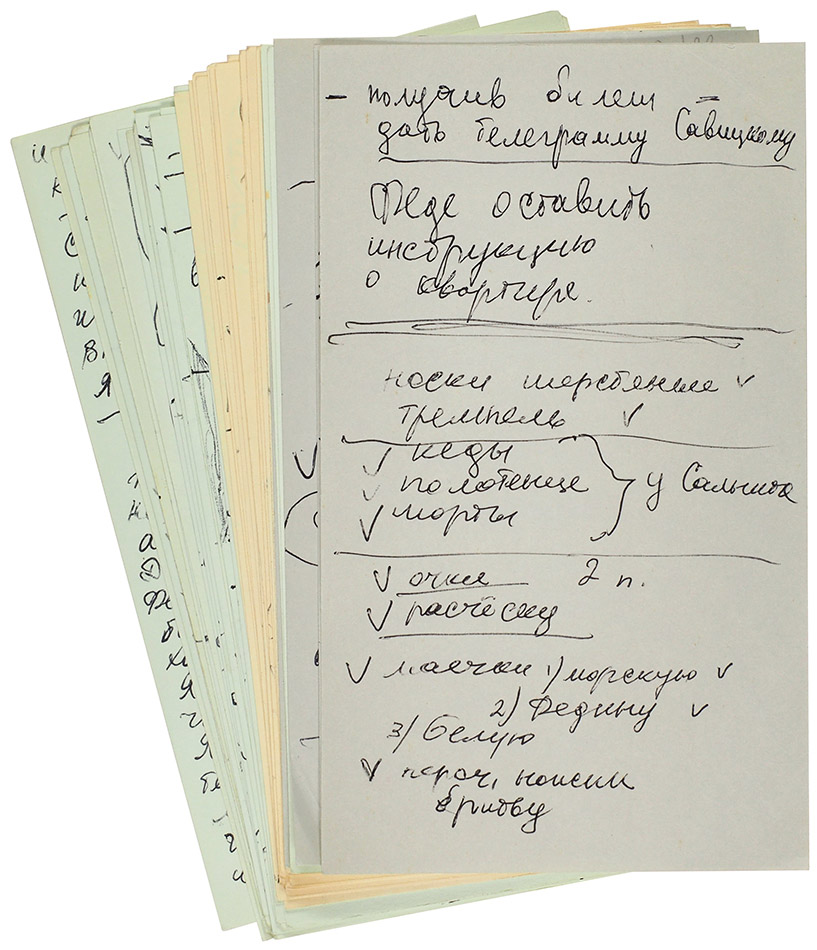 – получив билет –
дать телеграмму Савицкому
Феде оставить
инструкцию
о квартире.
носки шерстяные ✓
тремпель ✓
✓ кеды
✓ полотенце } у Салынга
✓ шорты
✓ очки 2 п.
✓ расчёску
✓ маечки 1) морскую ✓
2) Федину ✓
3) белую
✓ носки
бритву
и
к
С
и
и
в.
Я
а
Я
ч
Я
ч
и